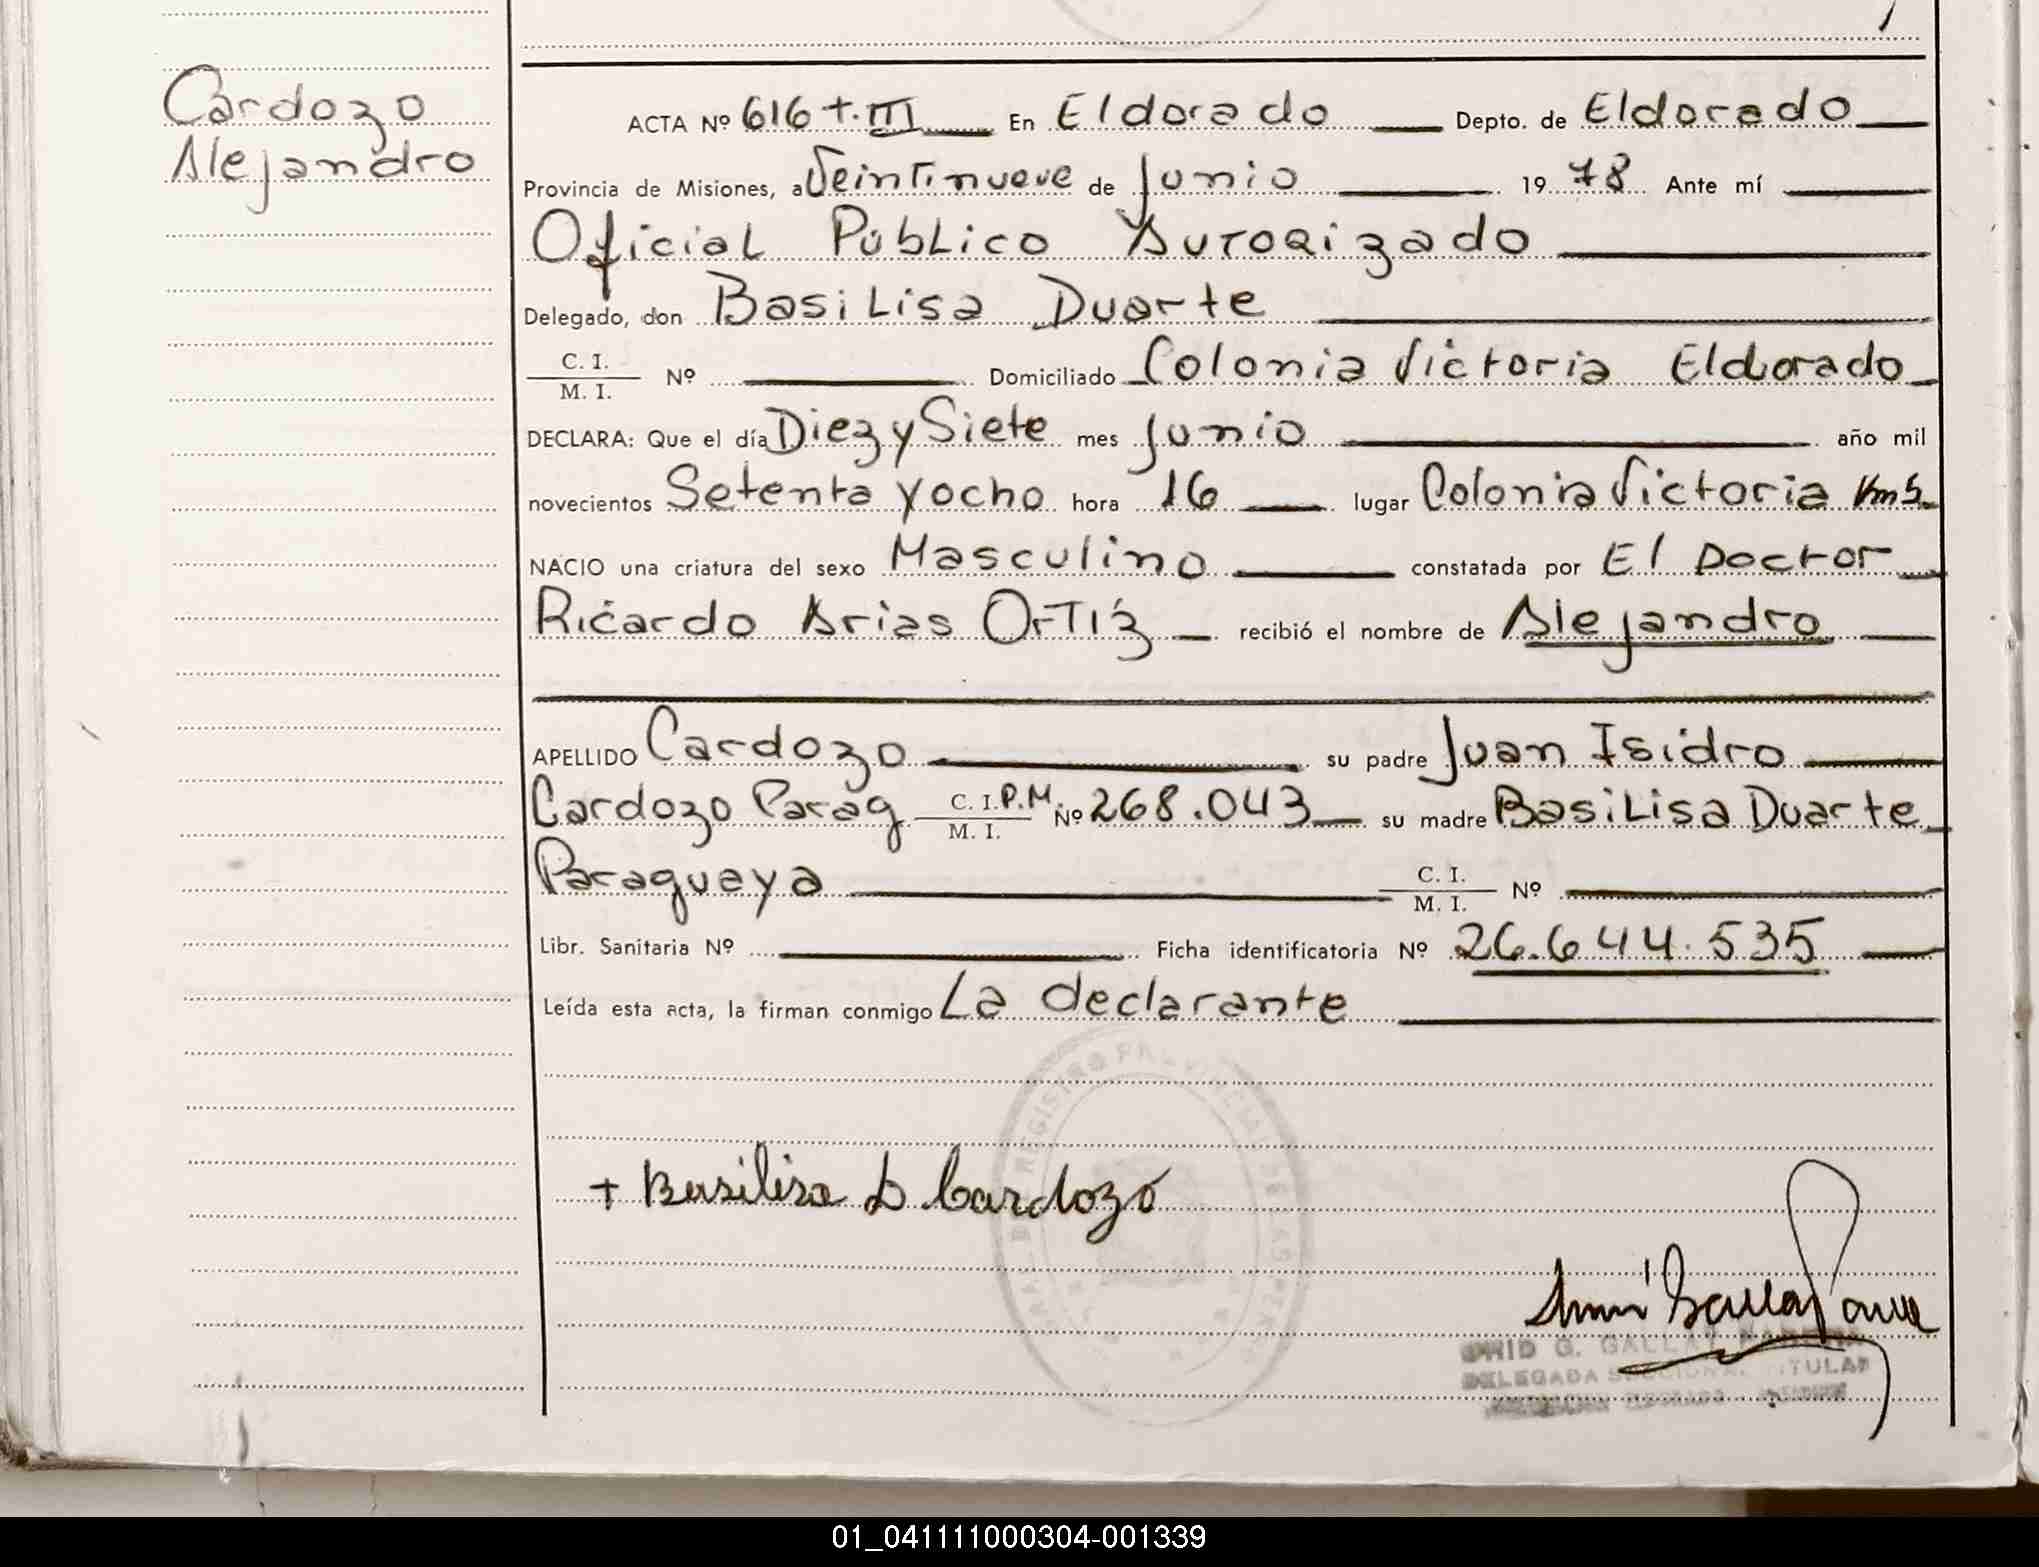 Cardozo
Alejandro
ACTA Nº 616 t. III En Eldorado Depto. de Eldorado
Provincia de Misiones, a Veintinueve de Junio 19 78 Ante mí
Oficial Público Autorizado
Delegado, don Basilisa Duarte
C. I. / M. I. Nº Domiciliado Colonia Victoria Eldorado
DECLARA: Que el día Diez y Siete mes Junio año mil
novecientos Setenta y ocho hora 16 lugar Colonia Victoria
NACIO una criatura del sexo Masculino constatada por El Doctor
Ricardo Arias Ortíz recibió el nombre de Alejandro
APELLIDO Cardozo su padre Juan Isidro
Cardozo Parag C. I. P.M. / M. I. Nº 268.043 su madre Basilisa Duarte
Paraguaya C. I. / M. I. Nº
Libr. Sanitaria Nº Ficha identificatoria Nº 26.644.535
Leída esta acta, la firman conmigo La declarante
+ Basilisa D Cardozo
G. GALLAY
DELEGADA SECCIONAL TITULAR
01_041111000304-001339